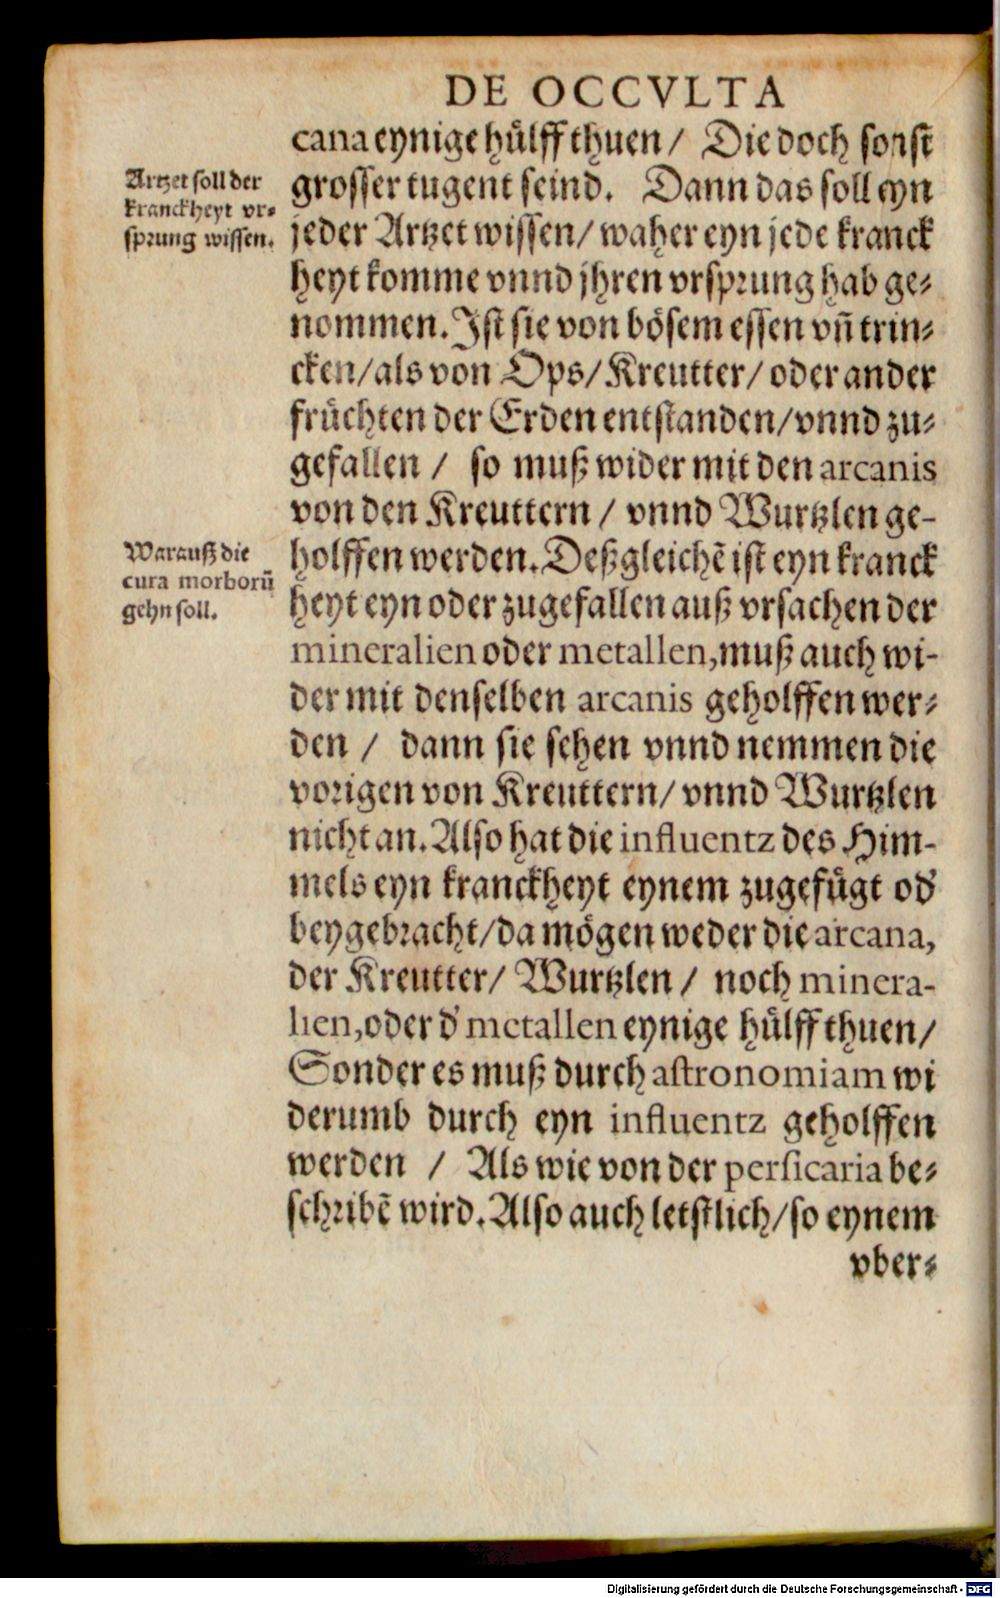 DE OCCVLTA
cana eynige hülff thuen / Die doch sonst
Artzet soll der
kranckheyt vr⸗
sprung wissen.
grosser tugent seind. Dann das soll eyn
jeder Artzet wissen/ waher eyn jede kranck
heyt komme vnnd jhren vrsprung hab ge⸗
nommen. Ist sie von bösem essen vñ trin⸗
cken/als von Ops/ Kreutter/ oder ander
früchten der Erden entstanden/vnnd zu⸗
gefallen / so muß wider mit den arcanis
von den Kreuttern / vnnd Wurtzlen ge-
Warauß die
cura morborũ
gehn soll.
holffen werden. Deßgleichẽ ist eyn kranck
heyt eyn oder zugefallen auß vrsachen der
mineralien oder metallen, muß auch wi-
der mit denselben arcanis geholffen wer⸗
den / dann sie sehen vnnd nemmen die
vorigen von Kreuttern/ vnnd Wurtzlen
nicht an. Also hat die influentz des Him-
mels eyn kranckheyt eynem zugefügt od'
beygebracht/da mögen weder die arcana,
der Kreutter/ Wurtzlen / noch minera-
lien, oder d' metallen eynige hülff thuen/
Sonder es muß durch astronomiam wi
derumb durch eyn influentz geholffen
werden / Als wie von der persicaria be⸗
schribẽ wird. Also auch letstlich/so eynem
vber⸗
Digitalisierung gefördert durch die Deutsche Forschungsgemeinschaft - DFG